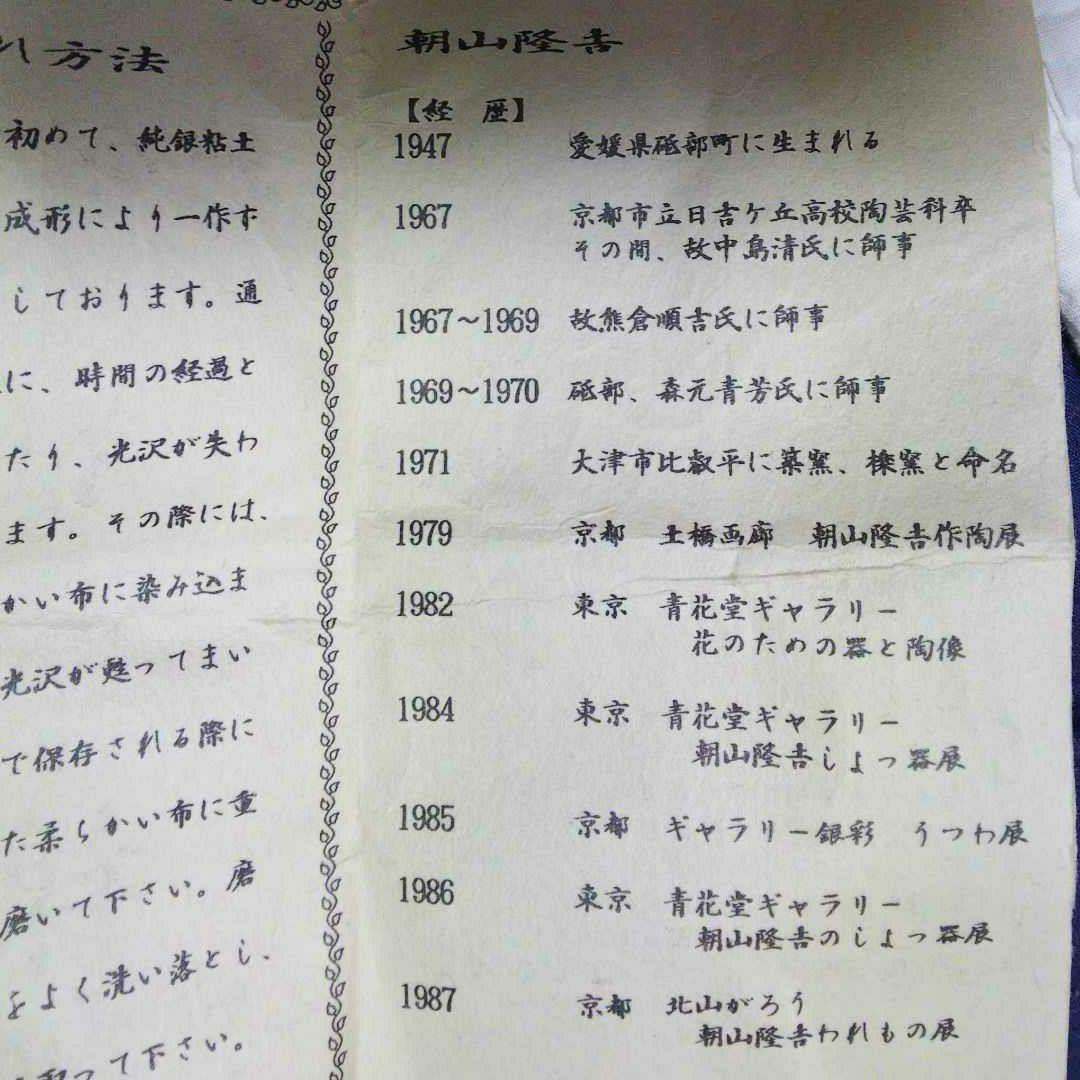 れ方法
初めて、純銀粘土
成形により一作ず
しております。通
に、時間の経過と
たり、光沢が失わ
ます。その際には、
かい布に染み込ま
光沢が甦ってまい
で保存される際に
た柔らかい布に重
磨いて下さい。磨
をよく洗い落とし、
って下さい。
朝山隆吉
【経 歴】
1947 愛媛県砥部町に生まれる
1967 京都市立日吉ケ丘高校陶芸科卒
その間、故中島清氏に師事
1967〜1969 故熊倉順吉氏に師事
1969〜1970 砥部、森元青芳氏に師事
1971 大津市比叡平に築窯、檪窯と命名
1979 京都 土橋画廊 朝山隆吉作陶展
1982 東京 青花堂ギャラリー
花のための器と陶像
1984 東京 青花堂ギャラリー
朝山隆吉しよっ器展
1985 京都 ギャラリー銀彩 うつわ展
1986 東京 青花堂ギャラリー
朝山隆吉のしよっ器展
1987 京都 北山がろう
朝山隆吉われもの展